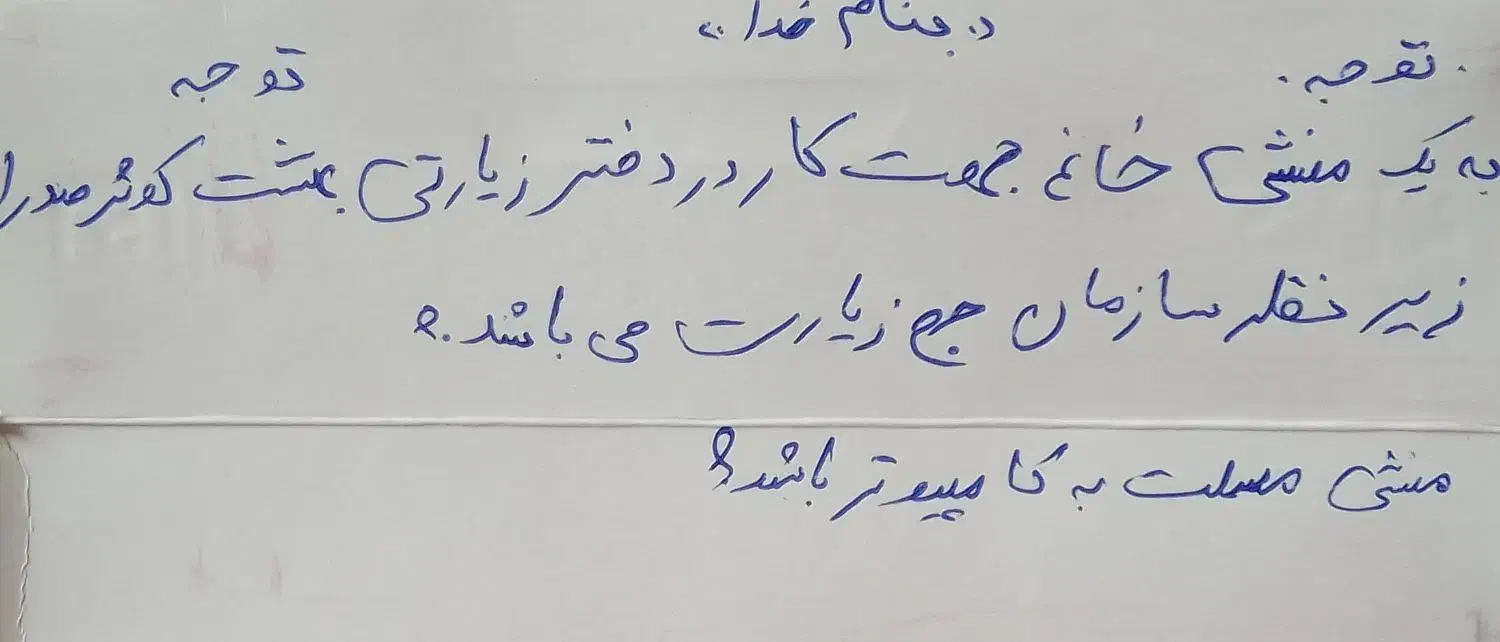 «بنام خدا»
توجه توجه
به یک منشی خانم جهت کار در دفتر زیارتی بهشت کوثر صدرا
زیر نظر سازمان حج زیارت می باشد.
منشی مسلت به کامپیوتر باشد